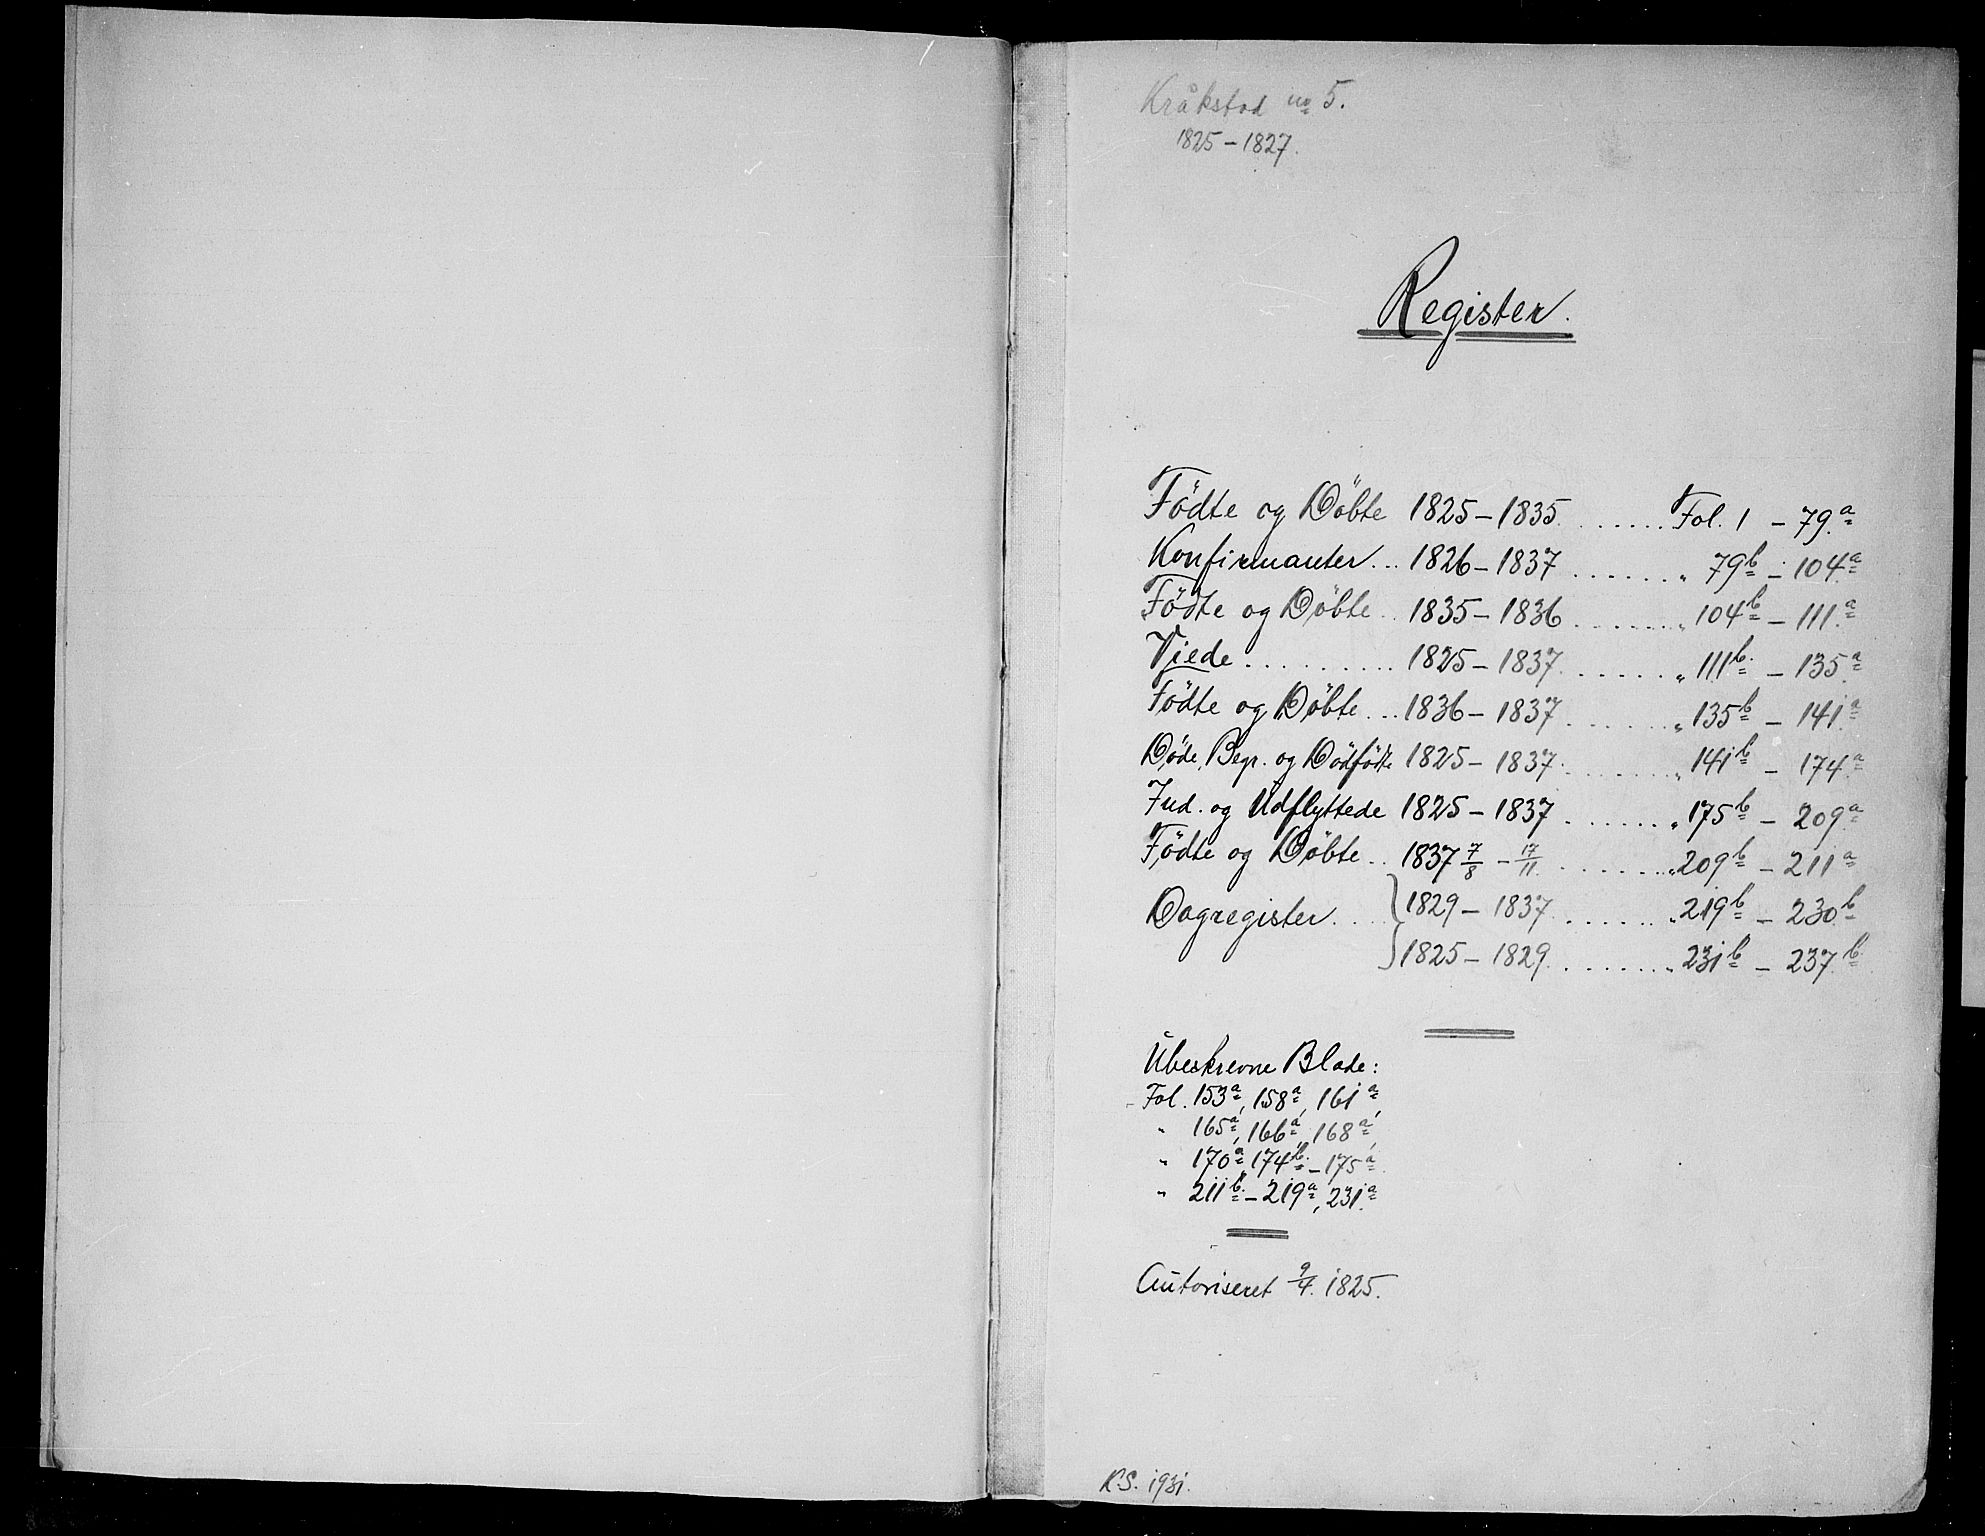 Kråkstad no 5.
1825 – 1827.
Register.
Födte og Döbte 1825 – 1835 ....... Fol. 1 – 79.a
Konfirmanter... 1826 – 1837 ....... " 79b – 104.a
Födte og Döbte .. 1835 – 1836 ....... " 104b – 111.a
Viede .......... 1825 – 1837 ....... " 111b. – 135.a
Födte og Döbte ... 1836 – 1837 ....... " 135b – 141.a
Döde, Begr. og Dödfödte 1825 – 1837 ....... " 141b – 174.a
Ind. og Udflyttede 1825 – 1837 ....... " 175b – 209.a
Födte og Döbte .. 1837 7/8 – 17/11 ....... " 209b – 211a
Dagregister .... } 1829 – 1837 ....... " 219b – 230.b
1825 – 1829 ....... " 231b – 237.b
Ubeskrevne Blade:
Fol. 153a, 158a, 161a,
" 165a, 166a, 168a,
" 170a, 174b. – 175a
" 211b. – 219a, 231.a
Autoriseret 9/4. 1825.
K.S. 1931.